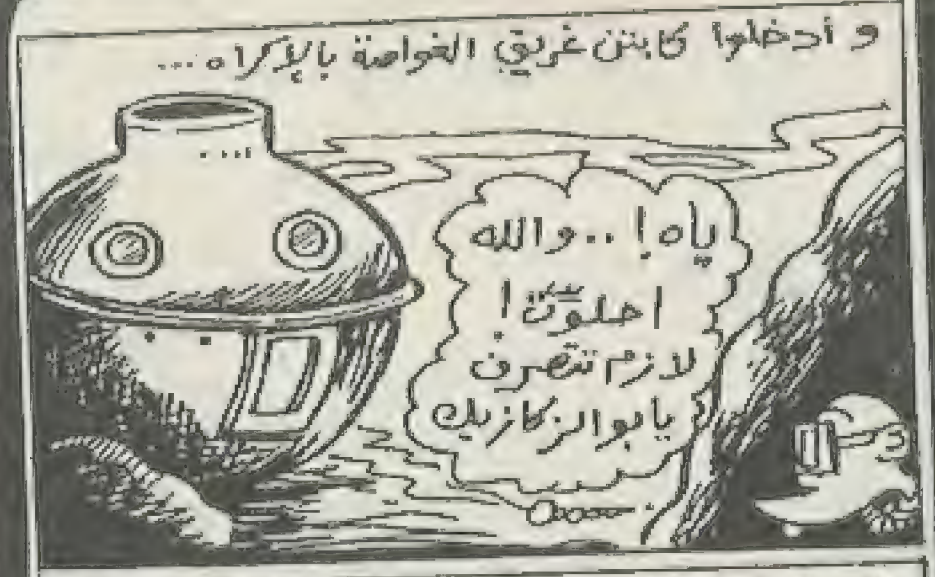 و أدخلوا كابتن غريق الغواصة بالإكراه...
ياه! .. والله
احلوّت!
لازم نتصرف
يابو الزكازيك